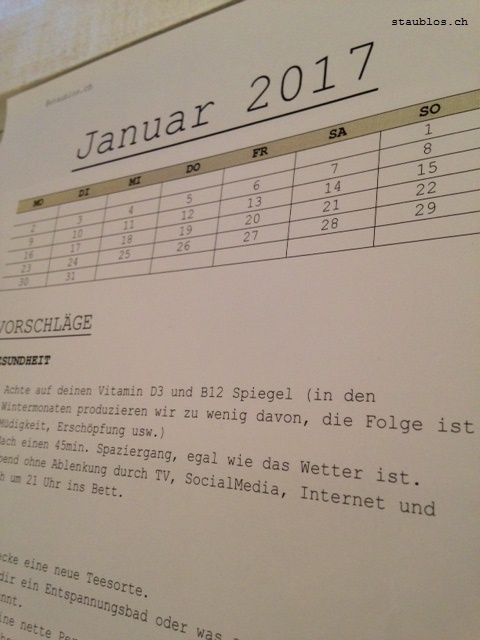 staublos.ch
Staublos.ch
Januar 2017
MO DI MI DO FR SA SO
1
2 3 4 5 6 7 8
9 10 11 12 13 14 15
16 17 18 19 20 21 22
23 24 25 26 27 28 29
30 31
VORSCHLÄGE
ESUNDHEIT
Achte auf deinen Vitamin D3 und B12 Spiegel (in den
Wintermonaten produzieren wir zu wenig davon, die Folge ist
Müdigkeit, Erschöpfung usw.)
Mach einen 45min. Spaziergang, egal wie das Wetter ist.
bend ohne Ablenkung durch TV, SocialMedia, Internet und
h um 21 Uhr ins Bett.
cke eine neue Teesorte.
dir ein Entspannungsbad oder was
nnt.
ine nette